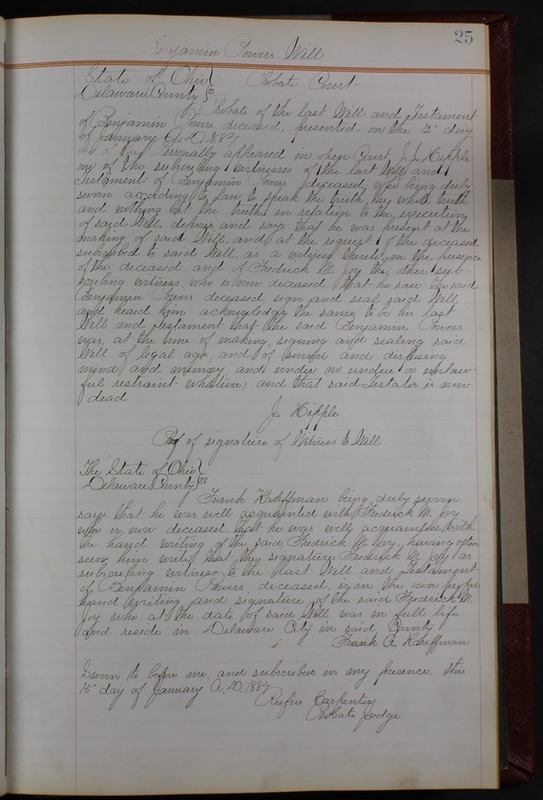 25
Benjamin Powers Will
State of Ohio } Probate Court
Delaware County } ss
Probate of the last Will and Testament
of Benjamin Powers deceased, presented on the 15" day
of January A.D. 1884
Personally appeared in open Court, J. Hipple
one of the subscribing witnesses of the last Will and
Testament of Benjamin Powers deceased, who being duly
sworn according to law to speak the truth, the whole truth
and nothing but the truth, in relation to the execution
of said Will, deposes and says that he was present at the
making of said Will, and at the request of the deceased
subscribed to said Will, as a witness thereto, in the presence
of the deceased and of Fredrick M. Joy the other sub-
scribing witness, who is now deceased, that he saw the said
Benjamin Powers deceased sign and seal said Will,
and heard him acknowledge the same to be his last
Will and Testament that the said Benjamin Powers
was, at the time of making, signing and sealing said
Will of legal age, and of sound and disposing
mind and memory and under no undue or unlaw-
ful restraint whatever; and that said Testator is now
dead
J. Hipple
Proof of signature of Witness to Will
The State of Ohio }
Delaware County } ss
Frank Kauffman being duly sworn
says that he was well acquainted with Fredrick M. Joy
who is now deceased that he was well acquainted with
the hand writing of the said Fredrick M. Joy, having often
seen him write that the signature Fredrick M. Joy as
subscribing witness to the last Will and Testament
of Benjamin Powers deceased, is in the own proper
hand writing and signature of the said Fredrick M.
Joy who at the date of said Will was in full life
and reside in Delaware City in said County
Frank A. Kauffman
Sworn to before me, and subscribed in my presence, this
15" day of January A.D. 1884
Rufus Carpenter
Probate Judge